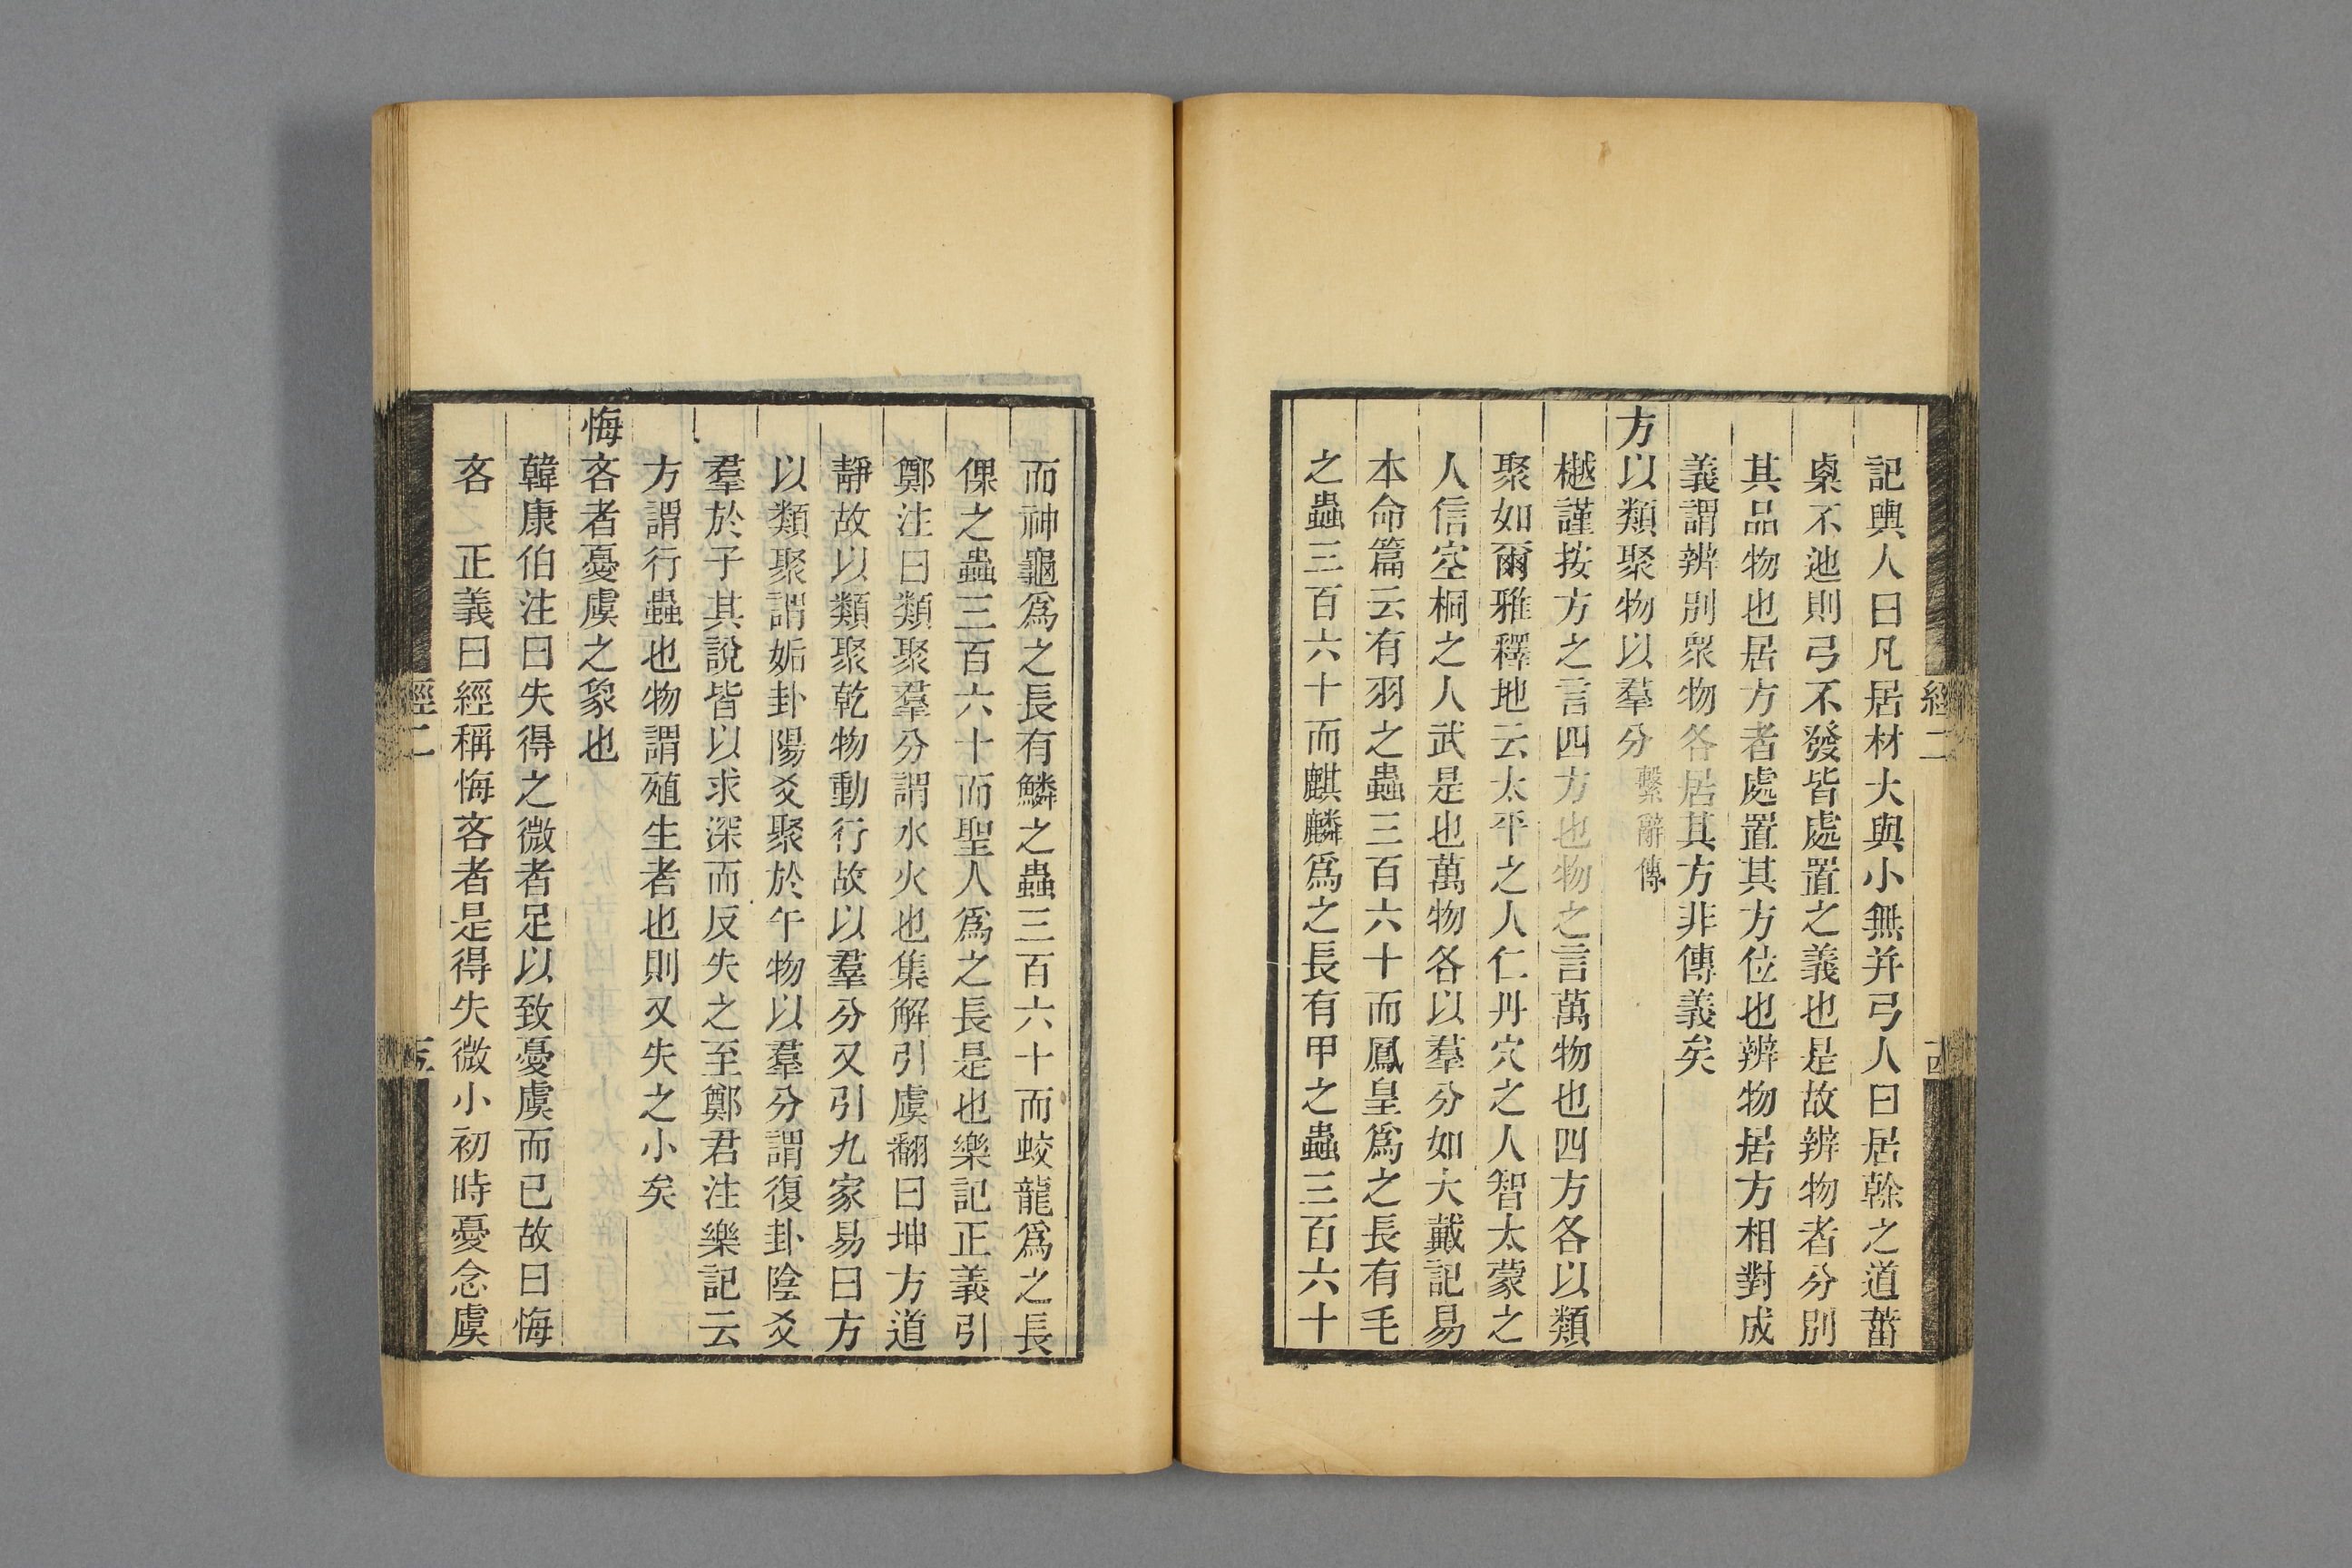 記輿人曰凡居材大與小無并弓人曰居幹之道菑
㮚不迆則弓不發皆處置之義也是故辨物者分別
其品物也居方者處置其方位也辨物居方相對成
義謂辨別衆物各居其方非傳義矣
方以類聚物以羣分繫辭傳
樾謹按方之言四方也物之言萬物也四方各以類
聚如爾雅釋地云太平之人仁丹穴之人智太蒙之
人信空桐之人武是也萬物各以羣分如大戴記易
本命篇云有羽之蟲三百六十而鳳皇爲之長有毛
之蟲三百六十而麒麟爲之長有甲之蟲三百六十
經二
古
而神龜爲之長有鱗之蟲三百六十而蛟龍爲之長
倮之蟲三百六十而聖人爲之長是也樂記正義引
鄭注曰類聚羣分謂水火也集解引虞翻曰坤方道
靜故以類聚乾物動行故以羣分又引九家易曰方
以類聚謂姤卦陽爻聚於午物以羣分謂復卦陰爻
羣於子其說皆以求深而反失之至鄭君注樂記云
方謂行蟲也物謂殖生者也則又失之小矣
悔吝者憂虞之象也
韓康伯注曰失得之微者足以致憂虞而已故曰悔
吝　正義曰經稱悔吝者是得失微小初時憂念虞
經二